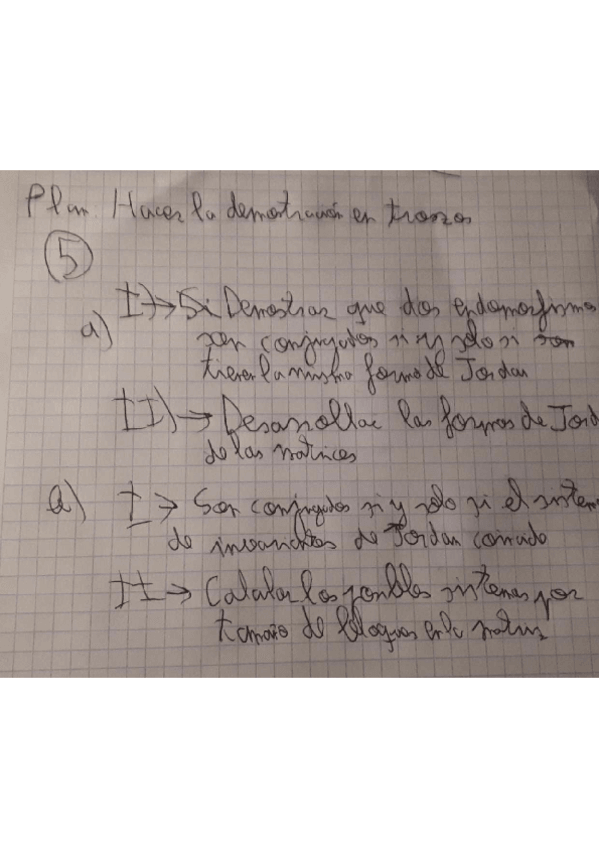 Plan Hacer la demostración en trozos
5
a) I) → Si Demostrar que dos endomorfismos
son conjugados si y solo si son
tienen la misma forma de Jordan
II) → Desarrollar las formas de Jord
de las matrices
a) I → Son conjugados si y solo si el sistem
de invariantes de Jordan coincide
II → Calcular los posibles sistemas por
tamaño de bloques en la matriz